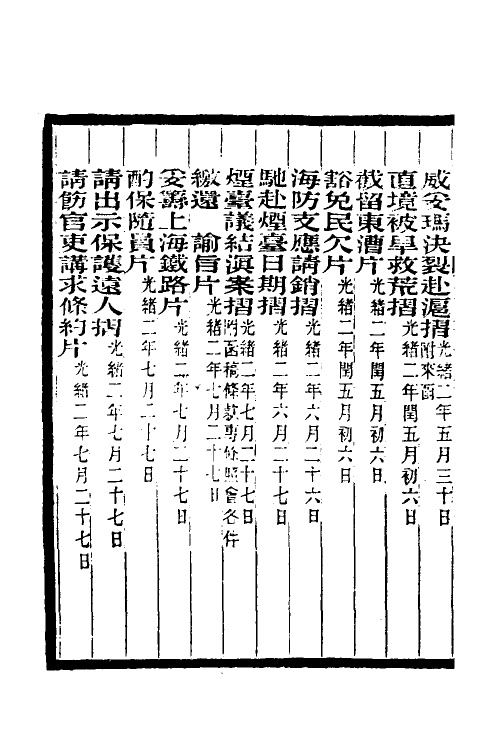 威妥瑪決裂赴滬摺光緒二年五月三十日附來函
直境被旱救荒摺光緒二年閏五月初六日
截留東漕片光緒二年閏五月初六日
豁免民欠片光緒二年閏五月初六日
海防支應請銷摺光緒二年六月二十六日
馳赴煙臺日期摺光緒二年六月二十七日
煙臺議結滇案摺光緒二年七月二十七日附函稿條款專條照會各件
繳還 諭旨片光緒二年七月二十七日
妥籌上海鐵路片光緒二年七月二十七日
酌保隨員片光緒二年七月二十七日
請出示保護遠人摺光緒二年七月二十七日
請飭官吏講求條約片光緒二年七月二十七日